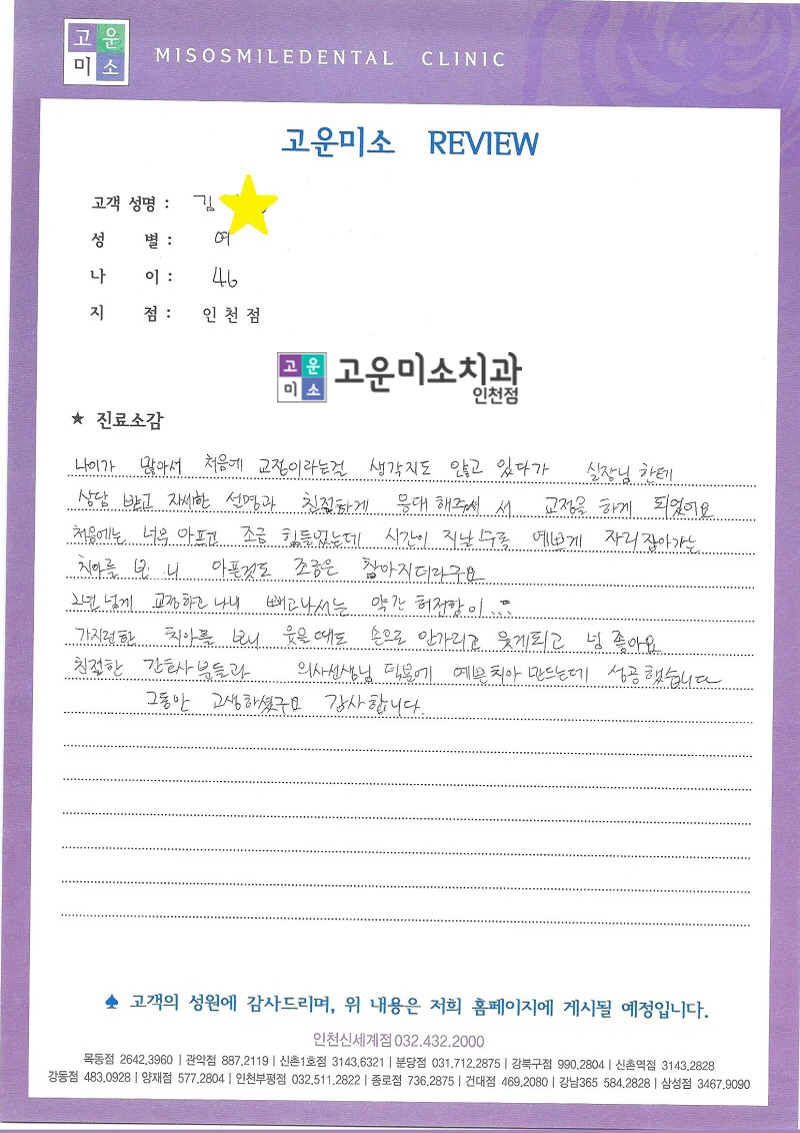 고운
미소
MISOSMILEDENTAL CLINIC
고운미소 REVIEW
고객 성명 : 김
성 별 : 여
나 이 : 46
지 점 : 인천점
고운
미소
고운미소치과
인천점
★ 진료소감
나이가 많아서 처음에 교정이라는걸 생각지도 않고 있다가 실장님 한테
상담 받고 자세한 설명과 친절하게 응대해주셔서 교정을 하게 되었어요
처음에는 너무 아프고 조금 힘들었는데 시간이 지날수록 예쁘게 자리잡아가는
치아를 보니 아픈것도 조금은 참아지더라구요
2년 넘게 교정하고 나니 빼고나서는 약간 허전함이...
가지런한 치아를 보니 웃을때도 손으로 안가리고 웃게되고 넘 좋아요
친절한 간호사분들과 의사선생님 덕분에 예쁜치아 만드는데 성공했습니다
그동안 고생하셨구요 감사합니다.
♠ 고객의 성원에 감사드리며, 위 내용은 저희 홈페이지에 게시될 예정입니다.
인천신세계점 032.432.2000
목동점 2642,3960 | 관악점 887,2119 | 신촌1호점 3143.6321 | 분당점 031.712.2875 | 강북구점 990,2804 | 신촌역점 3143,2828
강동점 483,0928 | 양재점 577,2804 | 인천부평점 032.511.2822 | 종로점 736,2875 | 건대점 469,2080 | 강남365 584,2828 | 삼성점 3467.9090